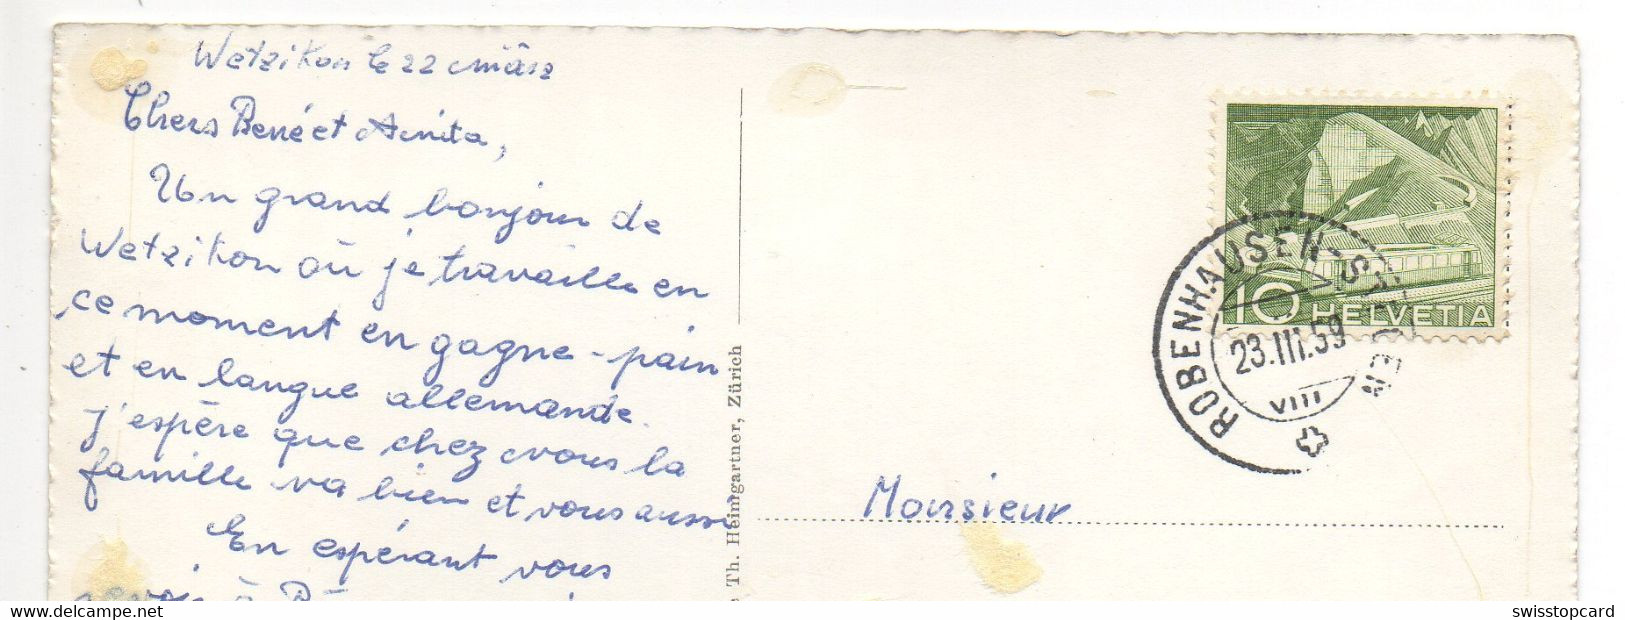 Wetzikon le 22 März
Chers René et Anita,
Un grand bonjour de
Wetzikon où je travaille en
ce moment en gagne-pain
et en langue allemande.
J'espère que chez vous la
famille va bien et vous aussi
En espérant vous
Th. Heimgartner, Zürich
10 HELVETIA
ROBENHAUSEN-
23.III.59
VIII
Monsieur
www.delcampe.net
swisstopcard